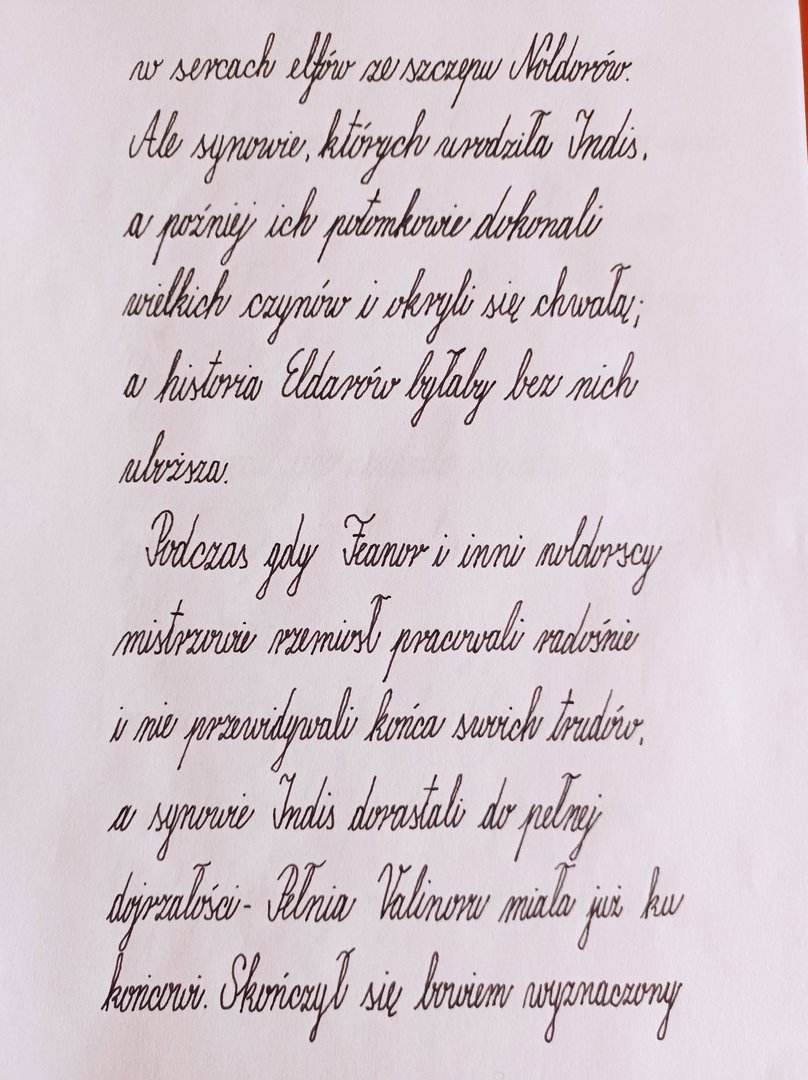 w sercach elfów ze szczepu Noldorów.
Ale synowie, których urodziła Indis,
a poźniej ich potomkowie dokonali
wielkich czynów i okryli się chwałą;
a historia Eldarów byłaby bez nich
uboższa.
Podczas gdy Fëanor i inni noldorscy
mistrzowie rzemiosł pracowali radośnie
i nie przewidywali końca swoich trudów,
a synowie Indis dorastali do pełnej
dojrzałości- Pełnia Valinoru miała już ku
końcowi. Skończył się bowiem wyznaczony